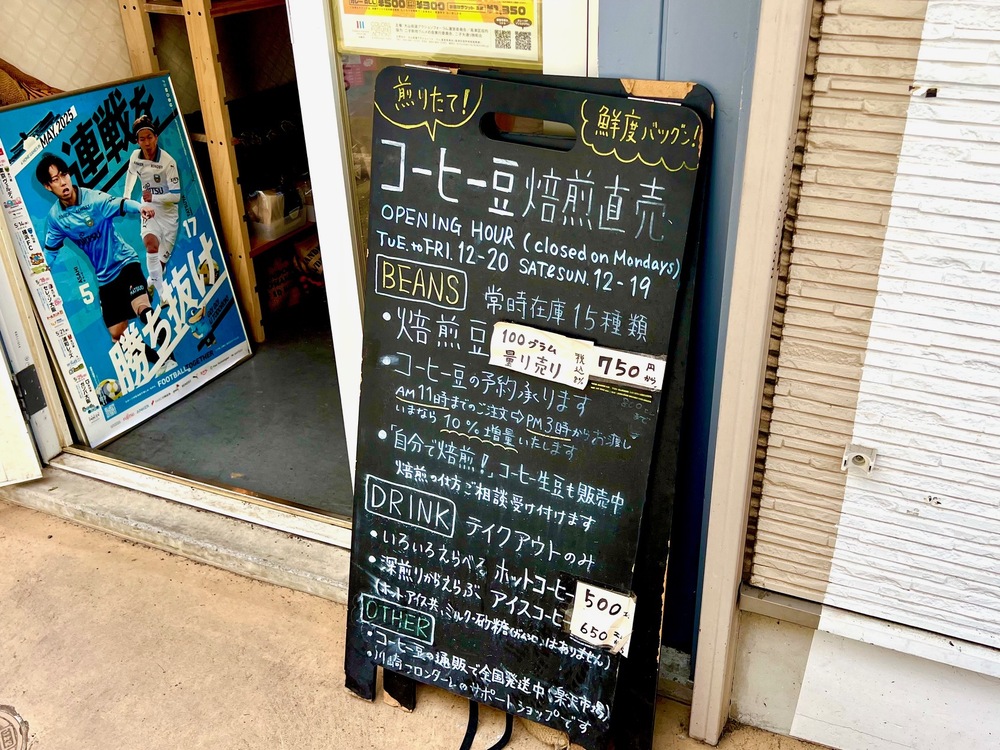 ¥500
¥300
¥1,350
MAY 2025
連戦を
勝ち抜け
5
17
FOOTBALL TOGETHER
煎りたて!
鮮度バツグン!
コーヒー豆焙煎直売
OPENING HOUR (closed on Mondays)
TUE. to FRI. 12-20 SAT&SUN. 12-19
BEANS 常時在庫15種類
・焙煎豆 100グラム 量り売り 税込み 750円から
・コーヒー豆の予約承ります
AM11時までのご注文⇨PM3時からお渡し
いまなら10%増量いたします
・「自分で焙煎!」コーヒー生豆も販売中
焙煎の仕方ご相談受け付けます
DRINK テイクアウトのみ
・いろいろえらべる ホットコーヒー 500
・深煎りからえらぶ アイスコーヒー 650
OTHER
・コーヒー豆の通販で全国発送中(楽天市場)
・川崎フロンターレのサポートショップです